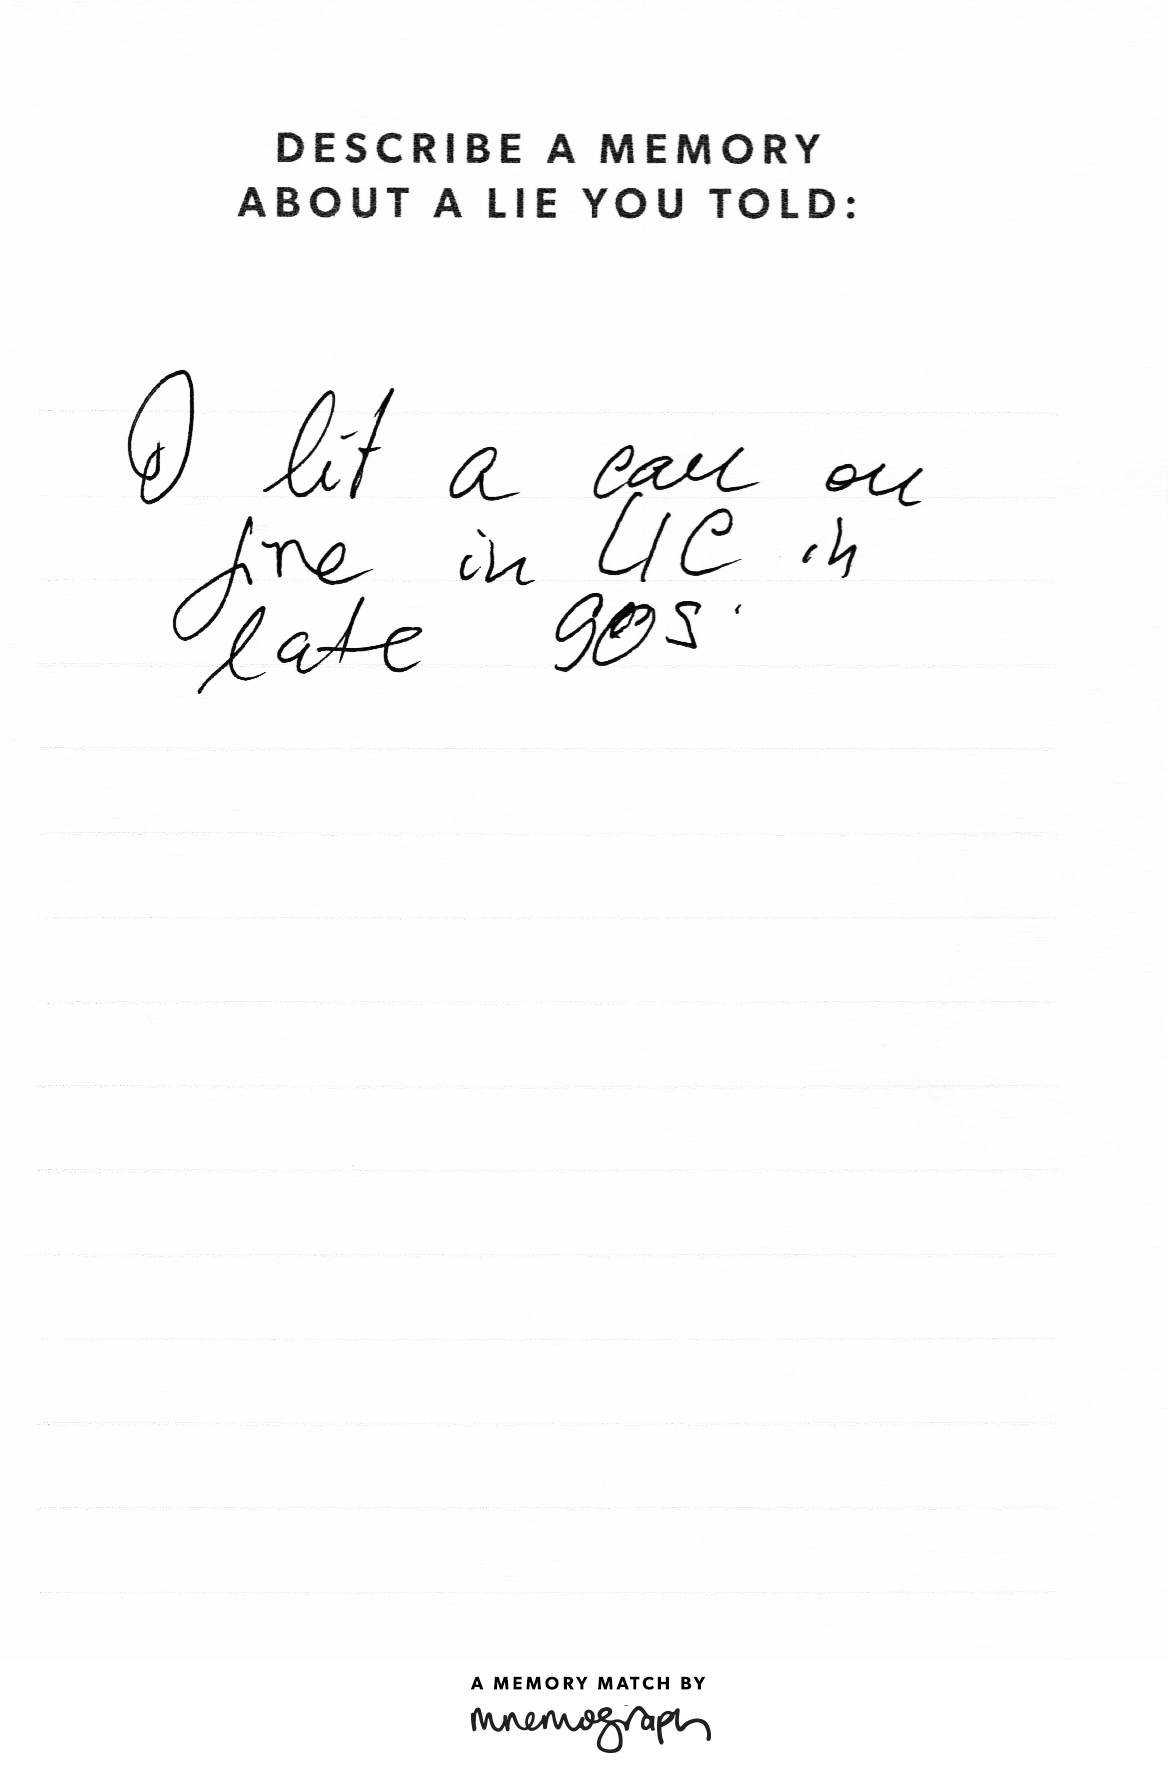 DESCRIBE A MEMORY
ABOUT A LIE YOU TOLD:
I lit a car on
fire in LIC in
late 90s.
A MEMORY MATCH BY
mnemograph